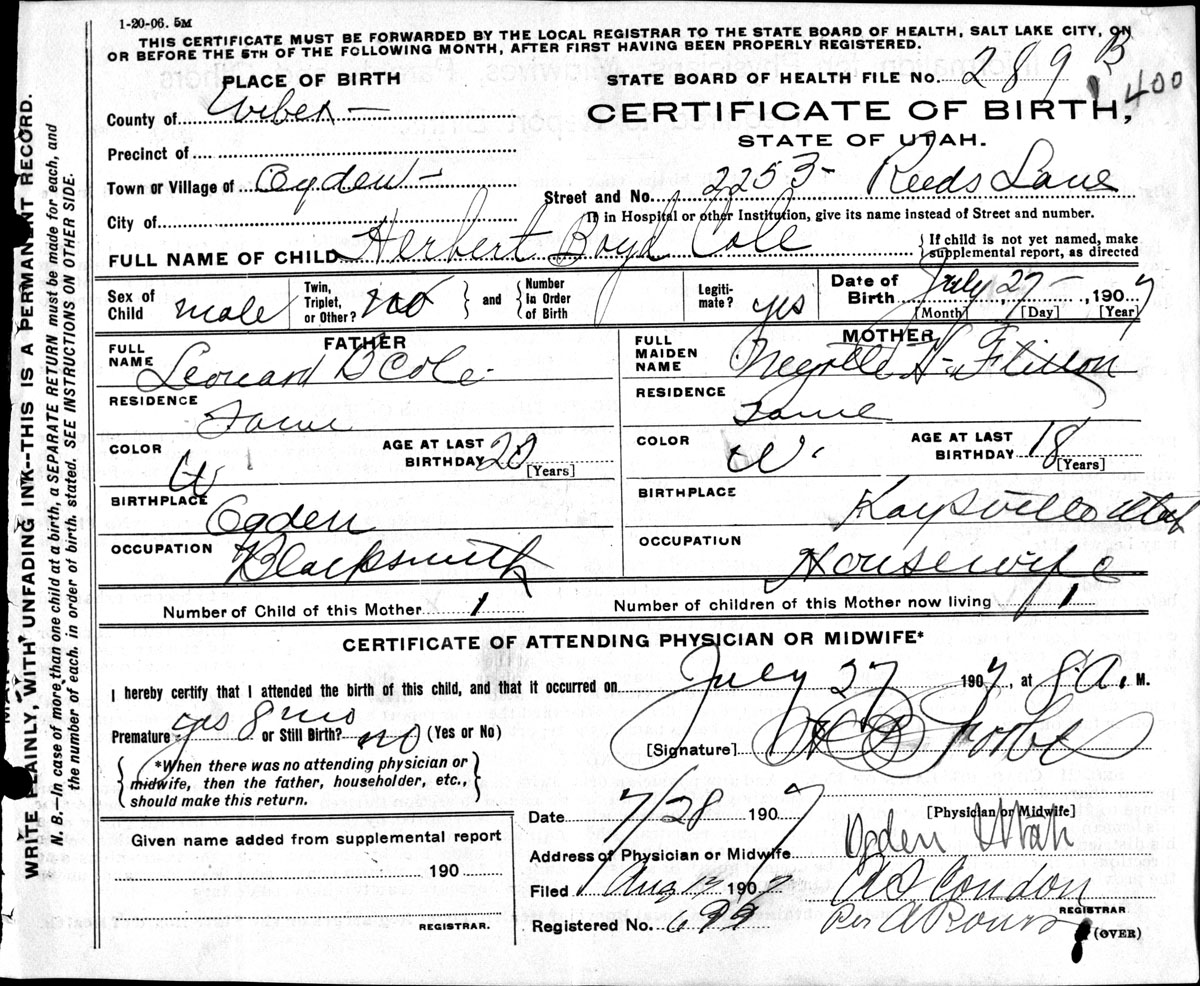 1-20-06. 5M
THIS CERTIFICATE MUST BE FORWARDED BY THE LOCAL REGISTRAR TO THE STATE BOARD OF HEALTH, SALT LAKE CITY, ON
OR BEFORE THE 5TH OF THE FOLLOWING MONTH, AFTER FIRST HAVING BEEN PROPERLY REGISTERED.
PLACE OF BIRTH
STATE BOARD OF HEALTH FILE No. 289 B
400
County of Weber
CERTIFICATE OF BIRTH,
STATE OF UTAH.
Precinct of
Town or Village of Ogden
Street and No. 2253 Reeds Lane
City of
If in Hospital or other Institution, give its name instead of Street and number.
FULL NAME OF CHILD Herbert Boyd Cole
If child is not yet named, make
supplemental report, as directed
Sex of Child male
Twin, Triplet, or Other? no
and
Number in Order of Birth
Legitimate? yes
Date of Birth July 27, 1907
[Month] [Day] [Year]
FATHER
MOTHER
FULL NAME Leonard B Cole
FULL MAIDEN NAME H Flitton
RESIDENCE Same
RESIDENCE Same
COLOR W
AGE AT LAST BIRTHDAY 20 [Years]
COLOR W.
AGE AT LAST BIRTHDAY 18 [Years]
BIRTHPLACE Ogden
BIRTHPLACE Kaysville Utah
OCCUPATION Blacksmith
OCCUPATION Housewife
Number of Child of this Mother 1
Number of children of this Mother now living 1
CERTIFICATE OF ATTENDING PHYSICIAN OR MIDWIFE*
I hereby certify that I attended the birth of this child, and that it occurred on July 27 1907, at 8 A. M.
Premature yes 8 mo or Still Birth? no (Yes or No)
[Signature]
*When there was no attending physician or
midwife, then the father, householder, etc.,
should make this return.
Date 7/28 1907
[Physician or Midwife]
Given name added from supplemental report
190
REGISTRAR.
Address of Physician or Midwife Ogden Utah
Filed Aug 1907
A S Condon
REGISTRAR
Registered No. 699
Per
(OVER)
WRITE PLAINLY, WITH UNFADING INK--THIS IS A PERMANENT RECORD.
N. B.—In case of more than one child at a birth, a SEPARATE RETURN must be made for each, and
the number of each, in order of birth, stated. SEE INSTRUCTIONS ON OTHER SIDE.